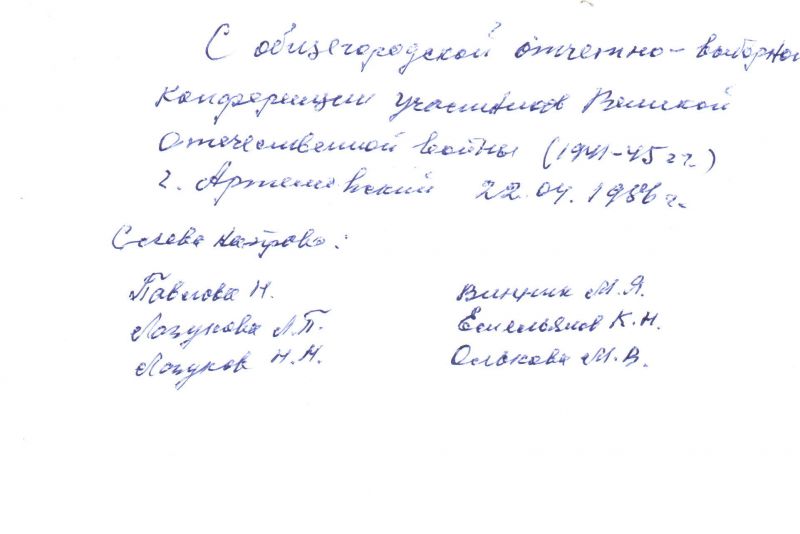 С общегородской отчетно-выборной
конференции участников Великой
Отечественной войны (1941-45 гг.)
г. Артемовский 22.04.1986 г.
Слева направо:
Павлова Н.
Лазукова Л.П.
Лазуков Н.Н.
Винник М.Я.
Емельянов К.Н.
Олькова М.В.